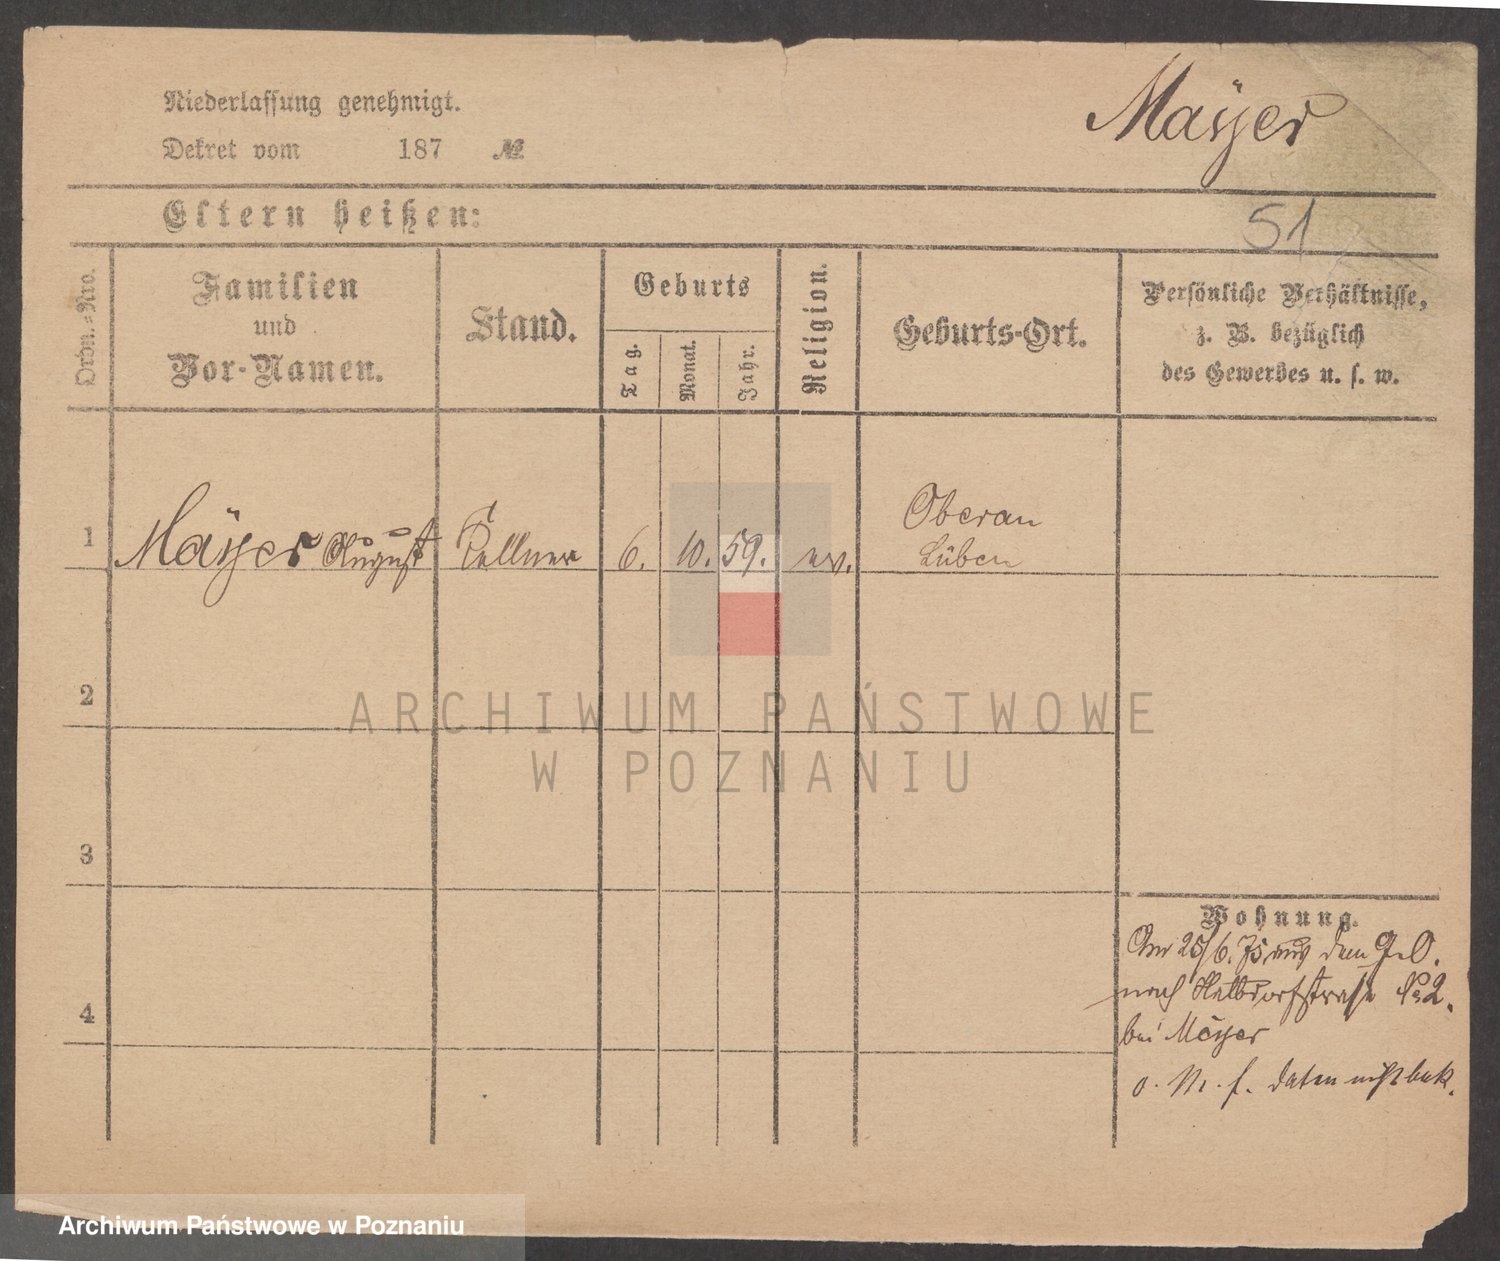 Niederlassung genehmigt.
Mayer
Dekret vom 187 №
Eltern heißen:
51
Ordn.-Nro.
Familien
und
Vor-Namen.
Stand.
Geburts
Tag.
Monat.
Jahr.
Religion.
Geburts-Ort.
Persönliche Verhältnisse,
z. B. bezüglich
des Gewerbes u. s. w.
1 Mayer August Kellner 6. 10. 59. ev. Oberau
Lüben
2
3
4
Wohnung.
25/6. 75 aus dem
nach Halbdorfstrasse No 2.
bei Meyer
Daten nicht bek.
ARCHIWUM PAŃSTWOWE
W POZNANIU
Archiwum Państwowe w Poznaniu